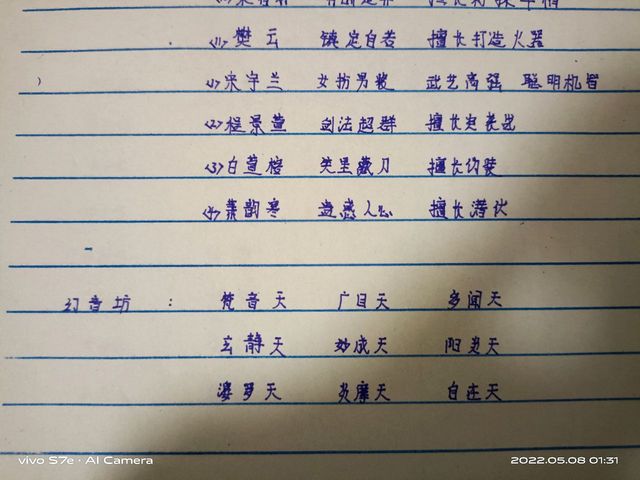 <11> 樊云 镇定自若 擅长打造火器
) <1> 宋宇兰 女扮男装 武艺高强 聪明机智
<2> 程景萱 剑法超群 擅长
<3> 白萱榕 笑里藏刀 擅长伪装
<4> 萧韵寒 蛊惑人心 擅长潜伏
幻音坊 : 梵音天 广目天 多闻天
玄静天 妙成天 阳炎天
婆罗天 炎摩天 自在天
vivo S7e · AI Camera 2022.05.08 01:31